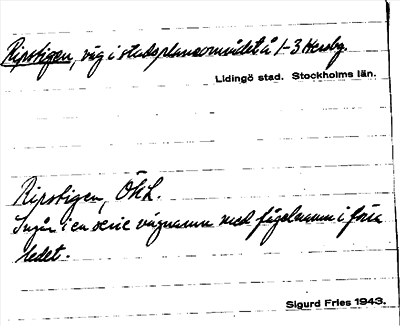 Ripstigen, väg i stadsplaneområdet å 1-3 Hersby.
Lidingö stad. Stockholms län.
Ripstigen, ÖkL.
Ingår i en serie vägnamn med fågelnamn i förra
ledet.
Sigurd Fries 1943.